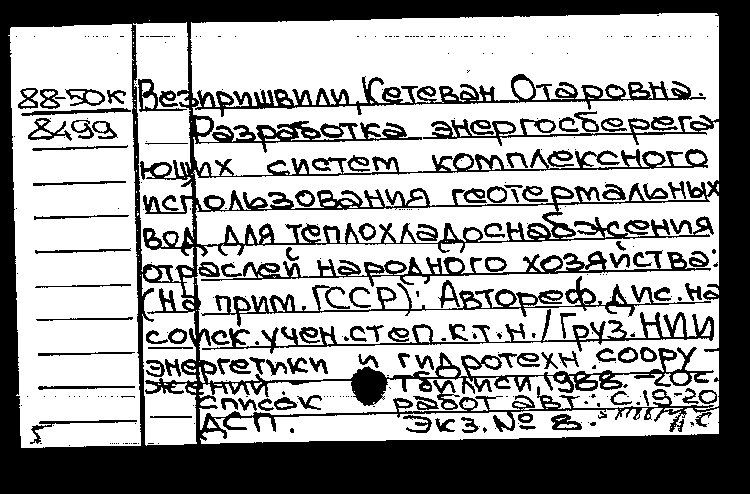 88-50к Везиришвили, Кетеван Отаровна.
8499 Разработка энергосберега-
ющих систем комплексного
использования геотермальных
вод для теплохладоснабжения
отраслей народного хозяйства:
(На прим. ГССР): Автореф. дис. на
соиск. учен. степ. к.т.н. / Груз. НИИ
энергетики и гидротехн. соору-
жений. - Тбилиси, 1988. - 20с.
Список работ авт.: с. 19-20
ДСП. Экз. № 8.